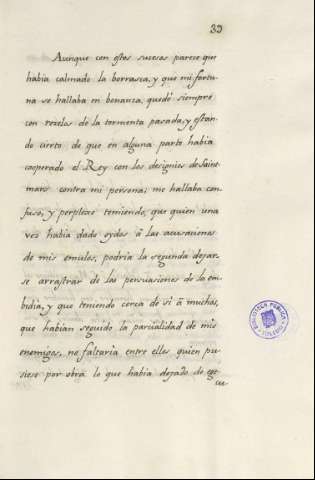 33
Aunque con estos sucesos parece que
habia calmado la borrasca, y que mi fortu-
na se hallaba en bonanza, quedó siempre
con rezelos de la tormenta pasada; y estan-
do cierto de que en alguna parte habia
cooperado el Rey con los designios de Saint-
mars contra mi persona; me hallaba con-
fuso, y perplexo temiendo, que quien una
vez habia dado oydos á las acusaciones
de mis emulos, podria la segunda dejar-
se arrastrar de las persuasiones de la em-
bidia, y que teniendo cerca de si á muchos,
que habian seguido la parcialidad de mis
enemigos, no faltaria entre ellos quien pu-
siese por obra lo que habia dejado de ege-
cu-
BIBLIOTECA PUBLICA
TOLEDO